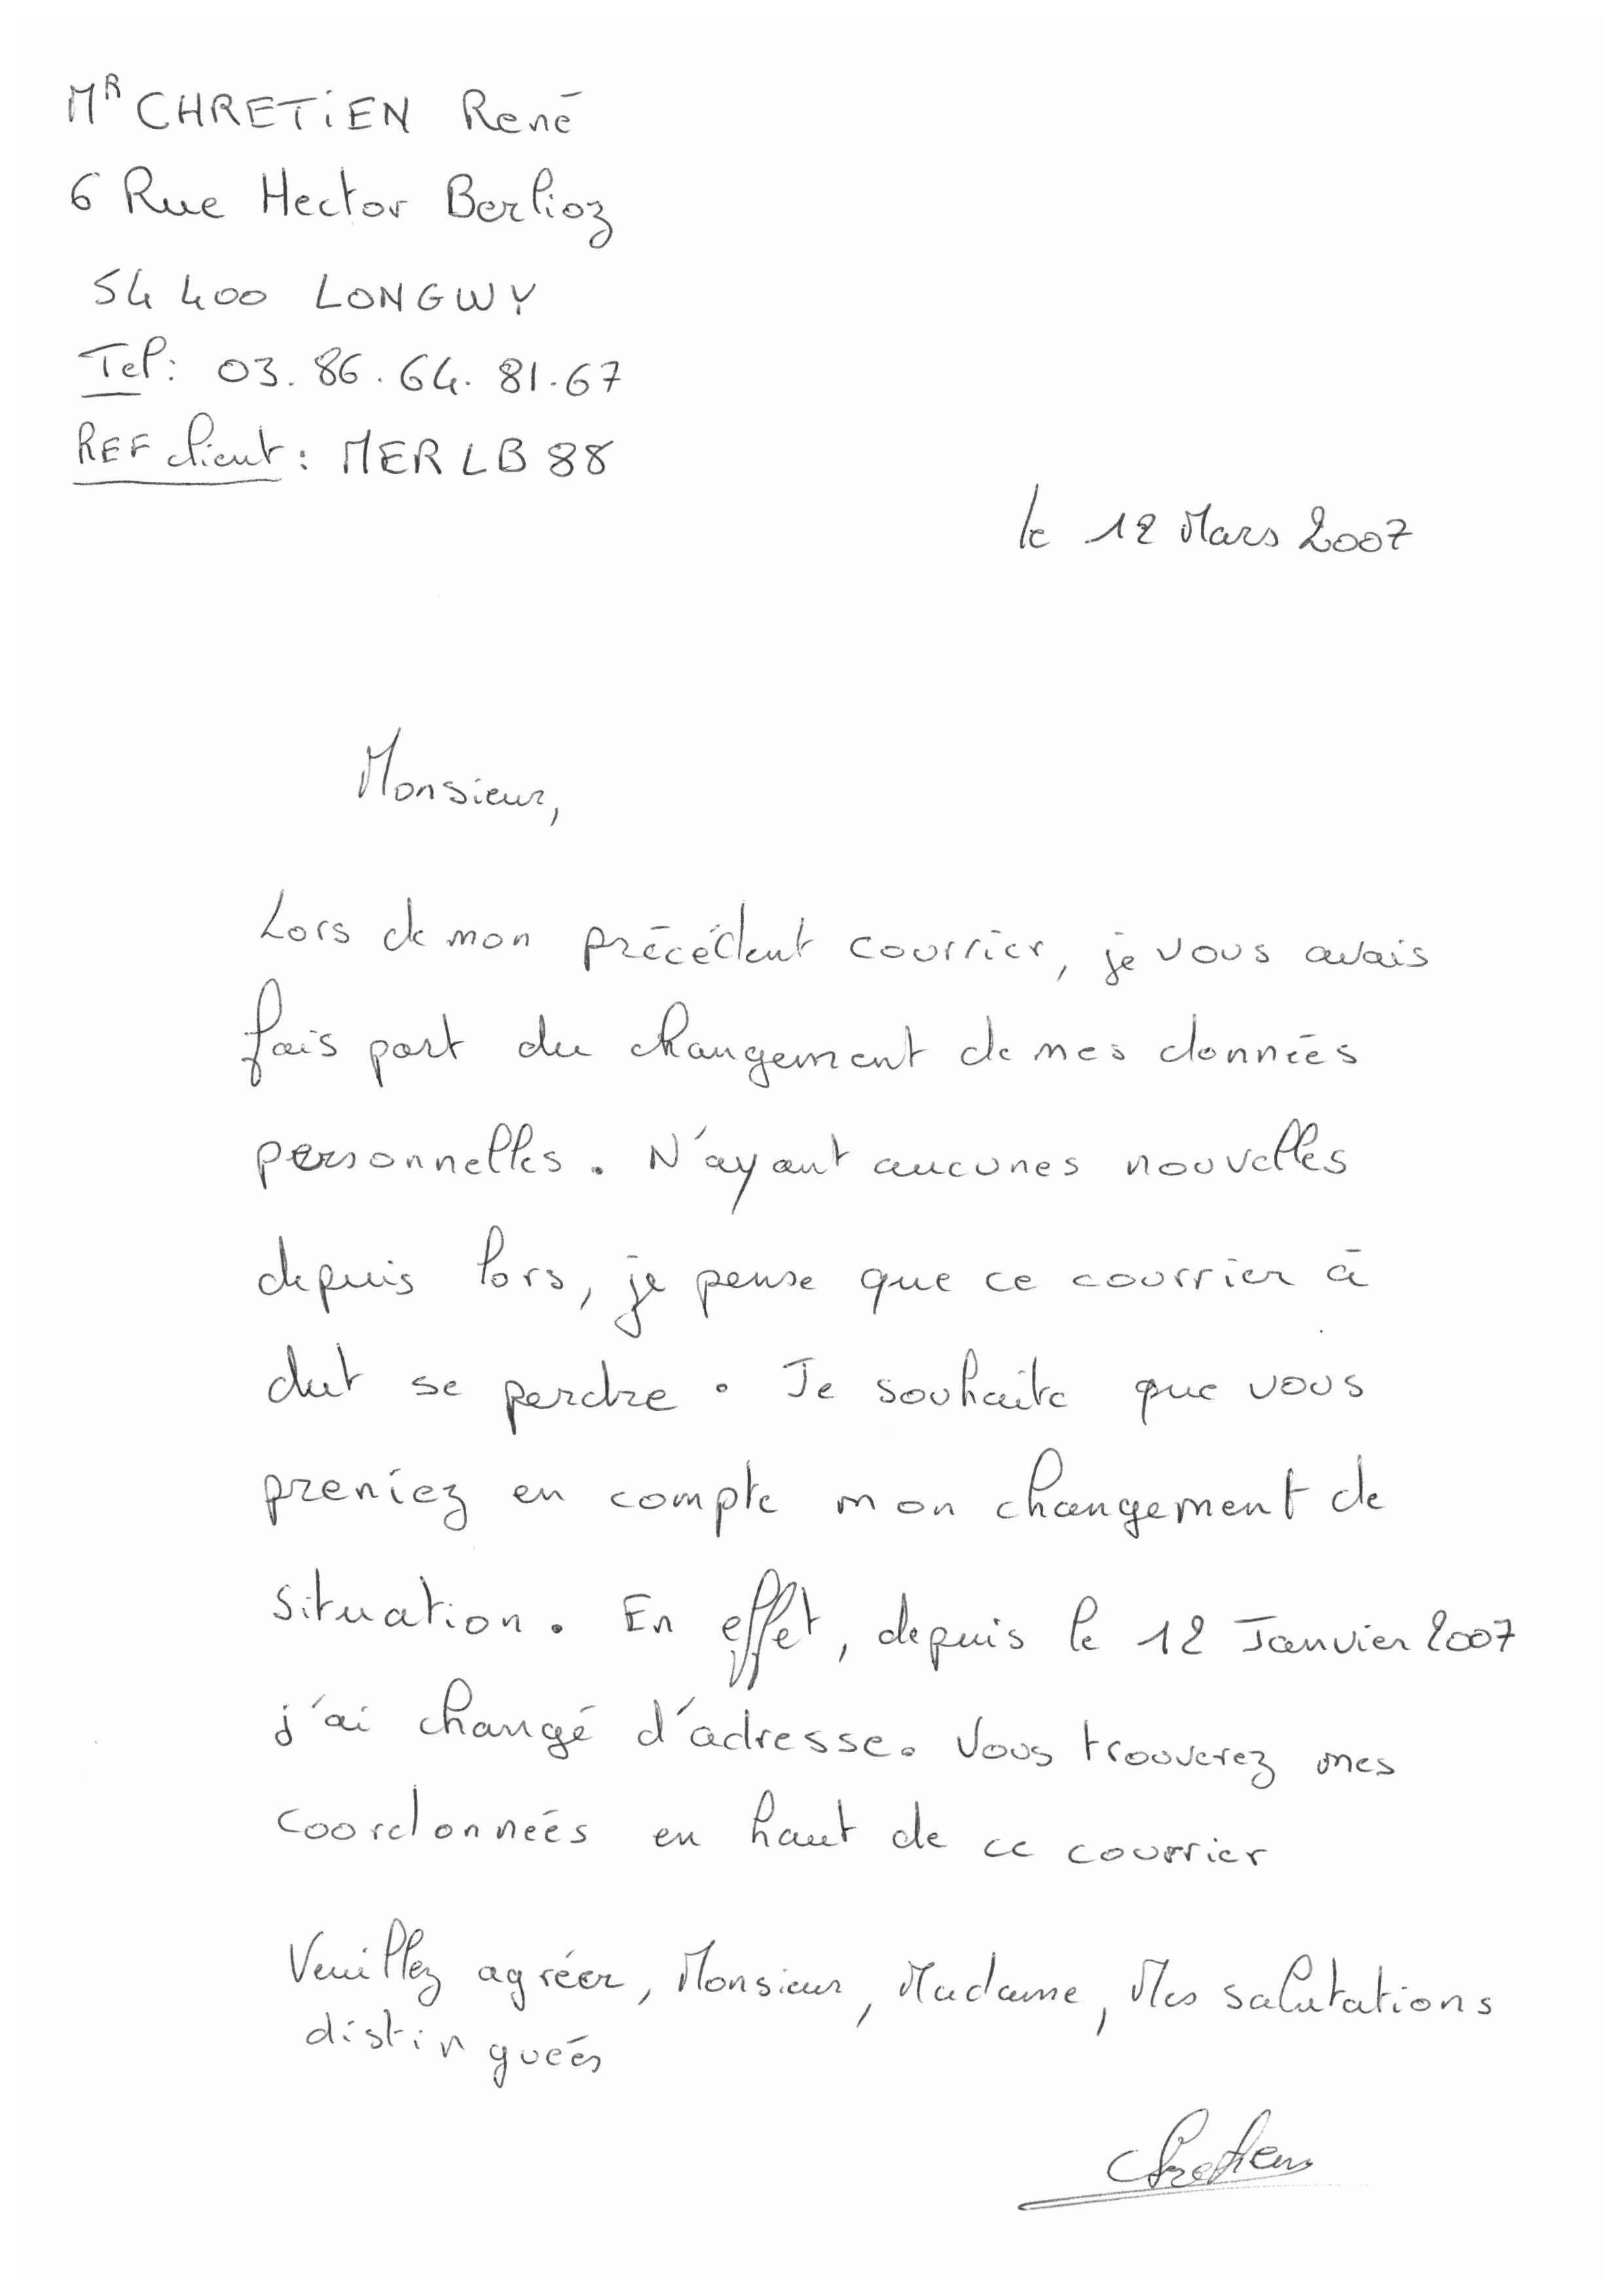 MR CHRETIEN René
6 Rue Hector Berlioz
54 400 LONGWY
Tel: 03. 86. 64. 81. 67
REF client : MERLB 88
le 12 Mars 2007
Monsieur,
Lors de mon précédent courrier, je vous avais
fais part du changement de mes données
personnelles. N'ayant aucunes nouvelles
depuis lors, je pense que ce courrier à
dut se perdre. Je souhaite que vous
preniez en compte mon changement de
situation. En effet, depuis le 12 Janvier 2007
j'ai changé d'adresse. Vous trouverez mes
coordonnées en haut de ce courrier
Veuillez agréer, Monsieur, Madame, Mes salutations
distinguées
Chretien